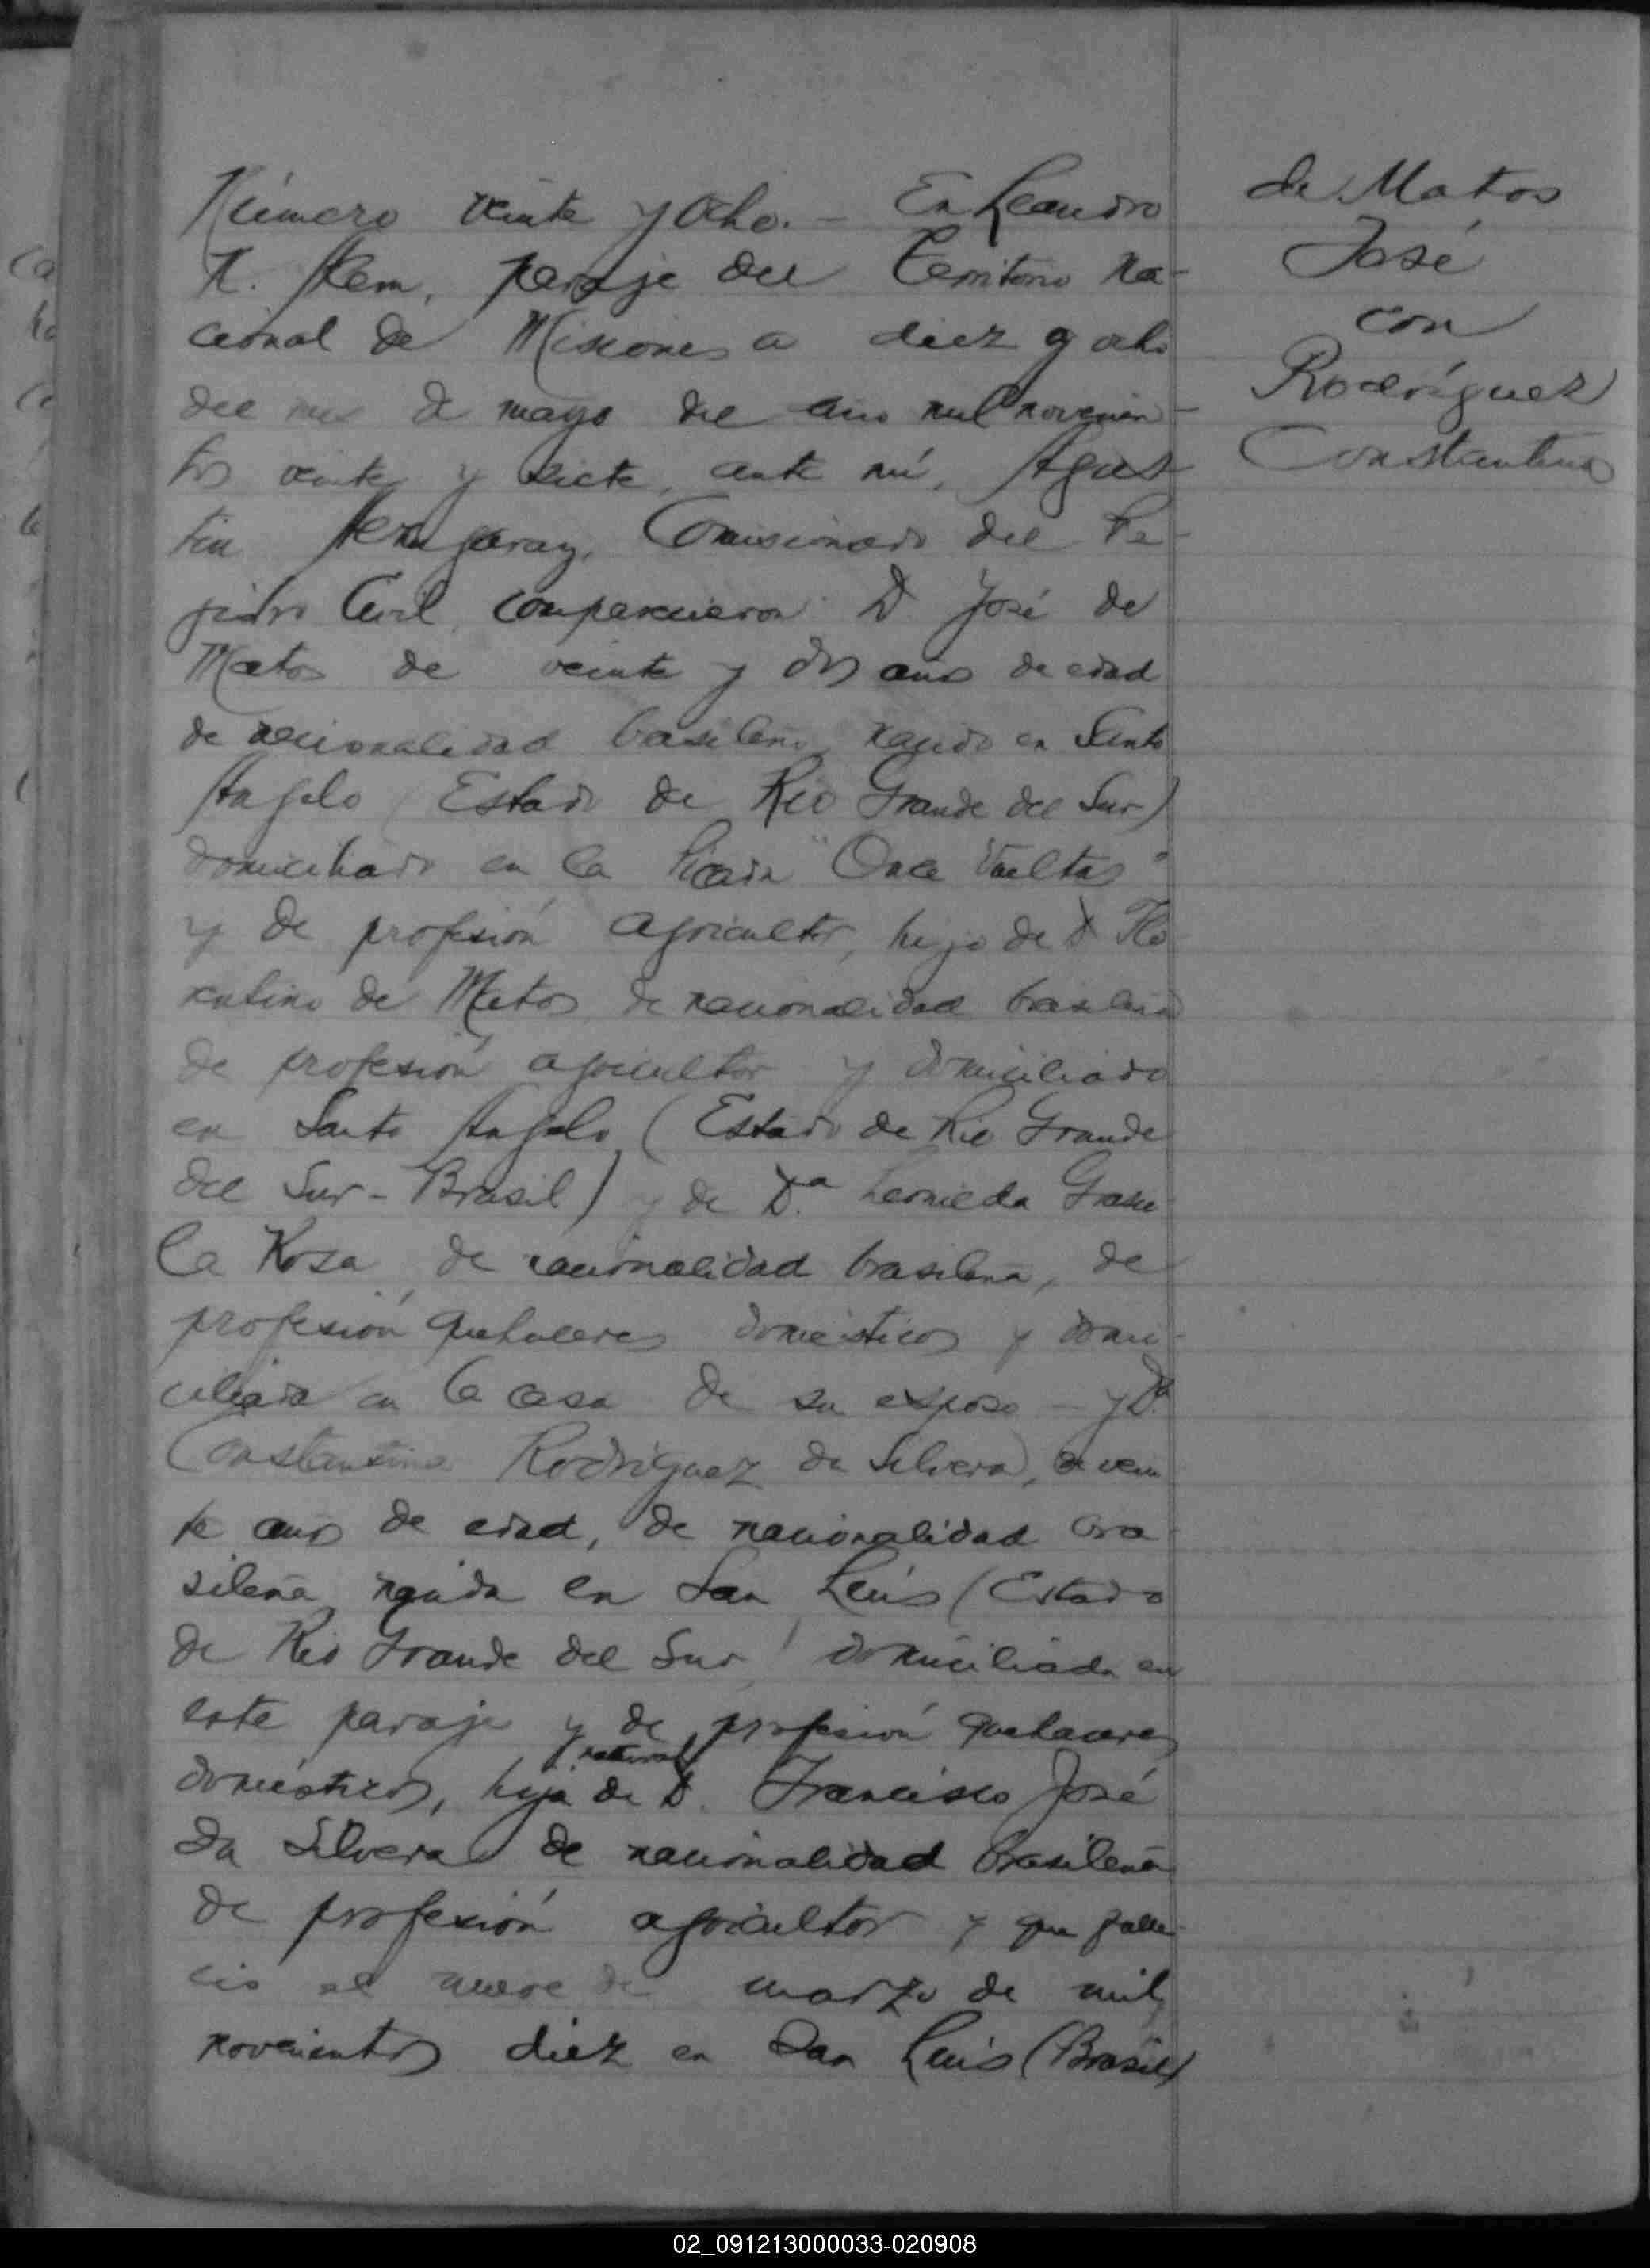 Número veinte y ocho. — En Leandro
N. Alem, paraje del Territorio Na-
cional de Misiones a diez y ocho
del mes de mayo del año mil novecien-
tos veinte y siete, ante mí, Agus-
tin Comisionado del Re-
gistro Civil, comparecieron D José de
Matos de veinte y dos años de edad
de nacionalidad brasileña, nacido en Santo
Angelo (Estado de Rio Grande del Sur)
domiciliado en la Picada "Once Vueltas"
y de profesión agricultor, hijo de D Flo
rentino de Matos, de nacionalidad brasileña
de profesión agricultor y domiciliado
en Santo Angelo (Estado de Rio Grande
del Sur - Brasil) y de Da.
la Rosa, de nacionalidad brasileña, de
profesión quehaceres domésticos y domi-
ciliada en la casa de su esposo — y Da.
Constantina Rodríguez da Silvera, de vein
te años de edad, de nacionalidad bra
sileña nacida en San Luis (Estado
de Rio Grande del Sur) domiciliada en
este paraje y de profesión quehaceres
natural
domésticos, hija de D. Francisco José
da Silvera de nacionalidad brasileña
de profesión agricultor y que falle
ció el nueve de marzo de mil
novecientos diez en San Luis (Brasil)
de Matos
José
con
Rodríguez
Constantina
02_091213000033-020908